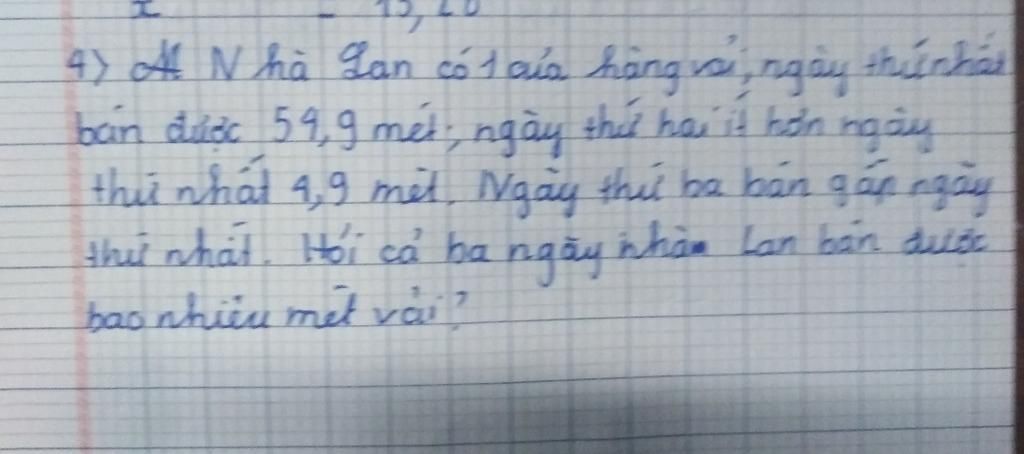 4) Nhà Lan có 1 cửa hàng vải, ngày thứ nhất
bán được 54,9 mét, ngày thứ hai ít hơn ngày
thứ nhất 4,9 mét. Ngày thứ ba bán gấp ngày
thứ nhất. Hỏi cả ba ngày nhà Lan bán được
bao nhiêu mét vải?